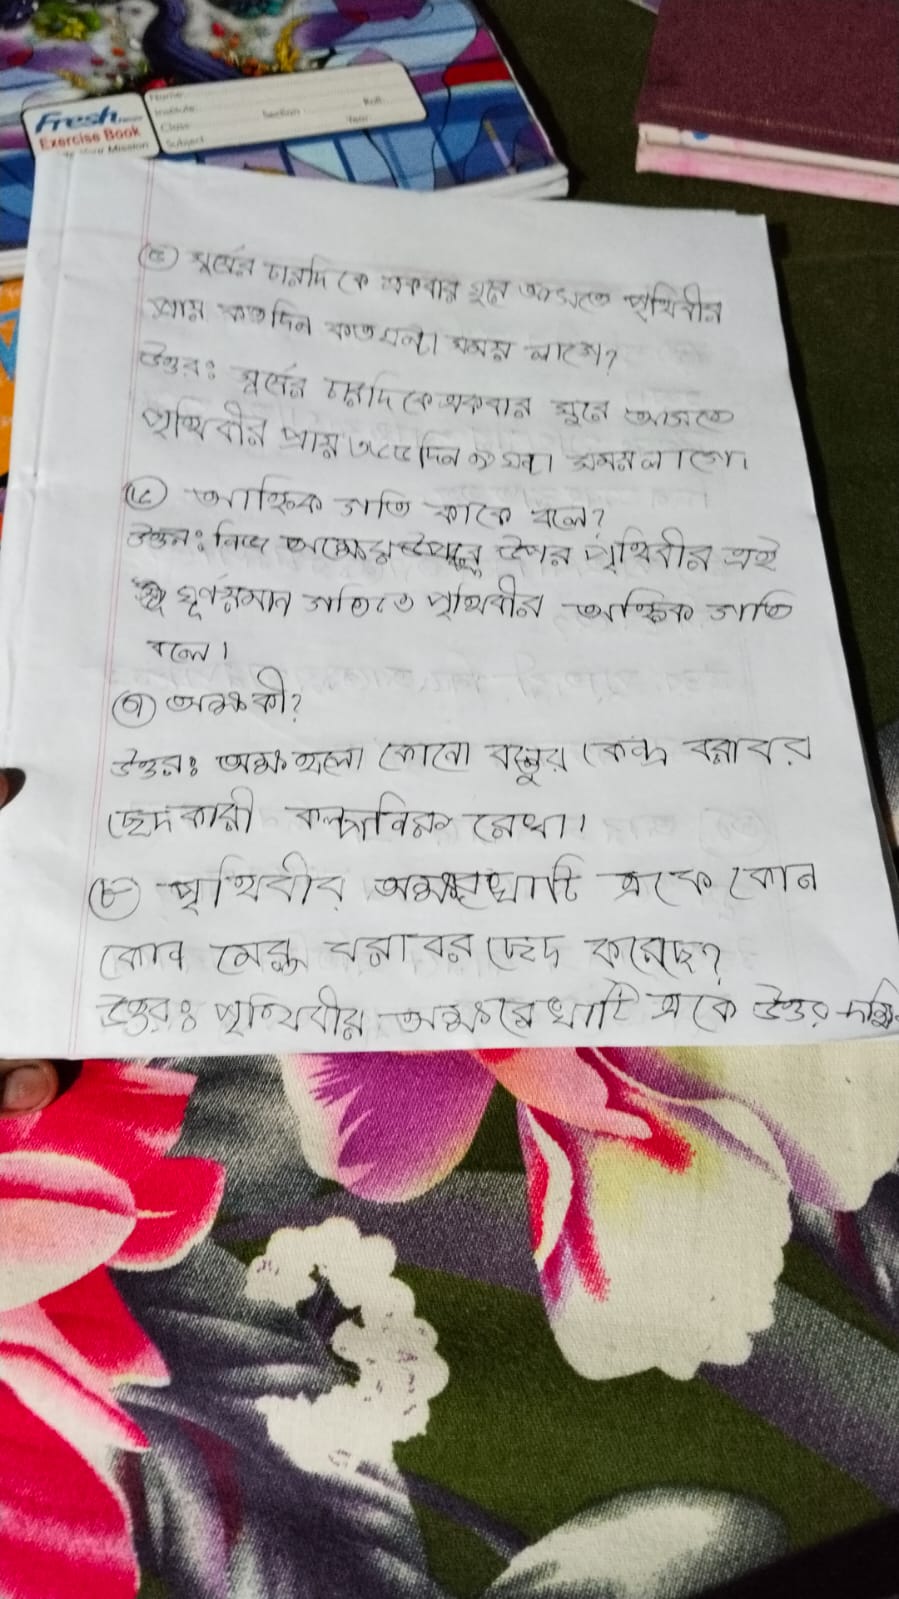 Fresh
Exercise Book
Name:
Institute:
Class: Section: Roll:
Subject: Year:
সূর্যের চারদি কে একবার ঘুরে আসতে পৃথিবীর
প্রায় কতদিন কতঘন্টা সময় লাগে?
উত্তর: সূর্যের চারদি কে একবার ঘুরে আসতে
পৃথিবীর প্রায় ৩৬৫ দিন ৬ ঘন্টা সময় লাগে।
৬ আহ্নিক গতি কাকে বলে?
উত্তর: নিজ উপর পৃথিবীর এই
ঘূর্ণয়মান গতিতে পৃথিবীর আহ্নিক গতি
বলে।
৭ অক্ষ কী?
উত্তর: অক্ষ হলো কোনো বস্তুর কেন্দ্র বরাবর
ছেদকারী কাল্পনিক রেখা।
৮ পৃথিবীর অক্ষরেখাটি একে কোন
কোন মেরু বরাবর ছেদ করেছে?
উত্তর: পৃথিবীর অক্ষরেখাটি একে উত্তর দক্ষি